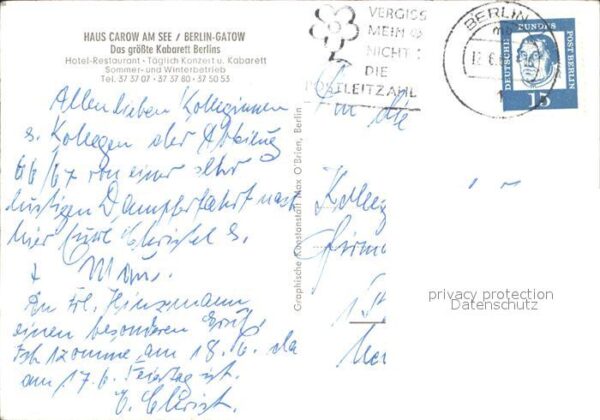 HAUS CAROW AM SEE / BERLIN-GATOW
Das größte Kabarett Berlins
Hotel-Restaurant - Täglich Konzert u. Kabarett
Sommer- und Winterbetrieb
Tel. 37 37 07 - 37 37 80 - 37 50 53
Allen lieben Kolleginnen
u. Kollegen der Abteilung
66/67 von einer sehr
lustigen Dampferfahrt nach
hier
An Frl. Hinzmann
einen besonderen Gruß
Ich komme am 18.6. da
am 17.6. Feiertag ist.
Graphische Kunstanstalt Max O'Brien, Berlin
VERGISS
MEIN
NICHT
DIE
POSTLEITZAHL
BERLIN
DEUTSCHE BUNDESPOST BERLIN
15
An die
Firma
privacy protection
Datenschutz